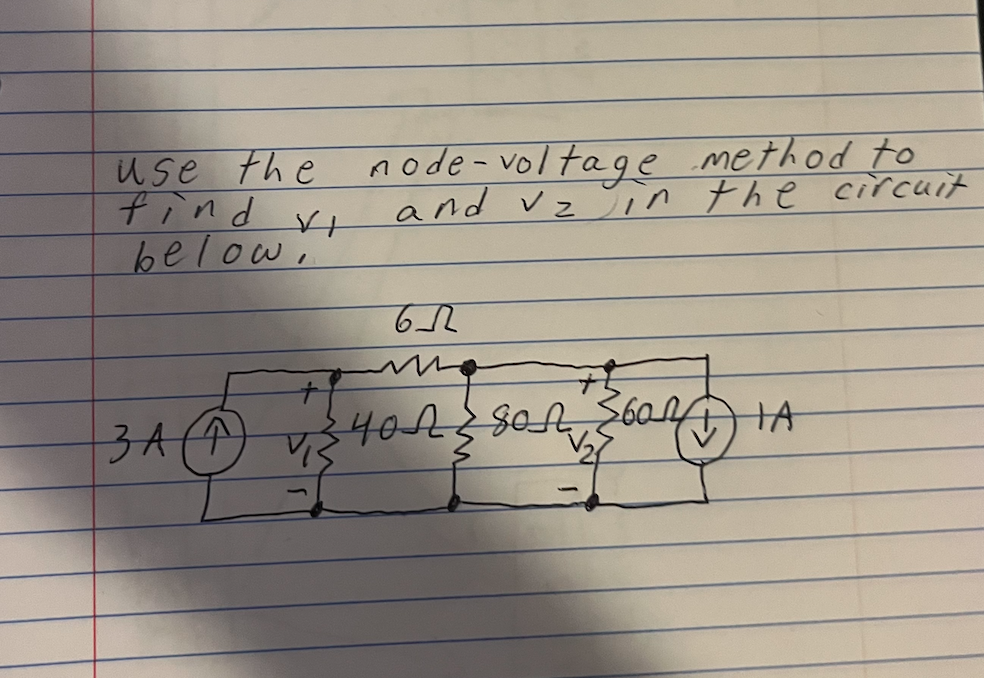 use the node-voltage method to
find v1 and v2 in the circuit
below.
6Ω
+ +
3A V1 40Ω 80Ω V2 60Ω 1A
- -